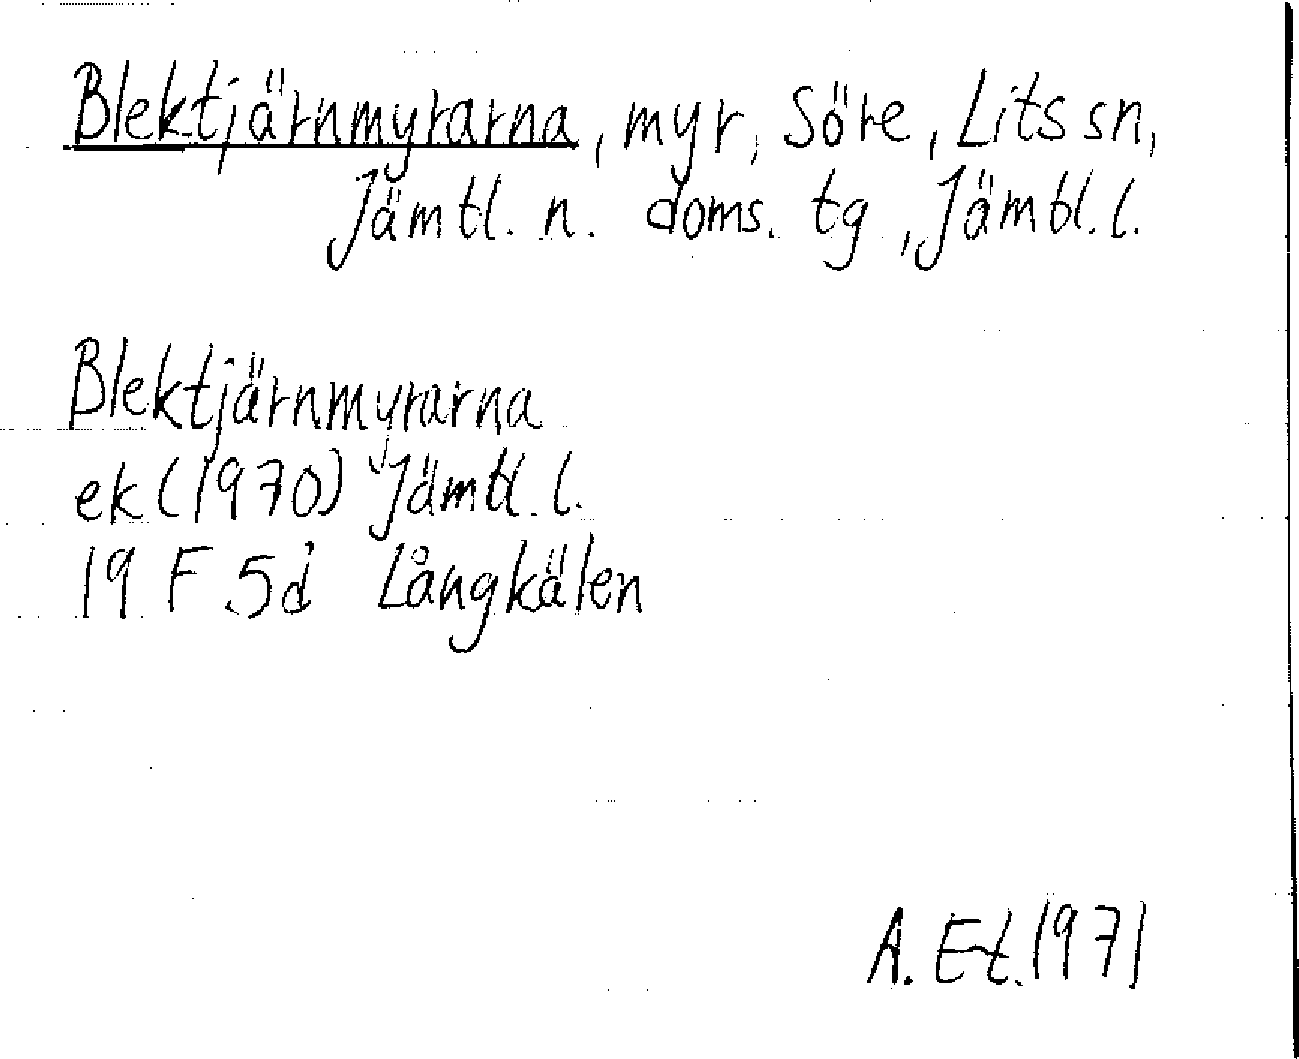 Blektjärnmyrarna, myr, Söre, Lits sn,
Jämtl. n. doms. tg, Jämtl. l.
Blektjärnmyrarna
ek (1970) Jämtl. l.
19 F 5d Långkälen
A. E-t. 1971